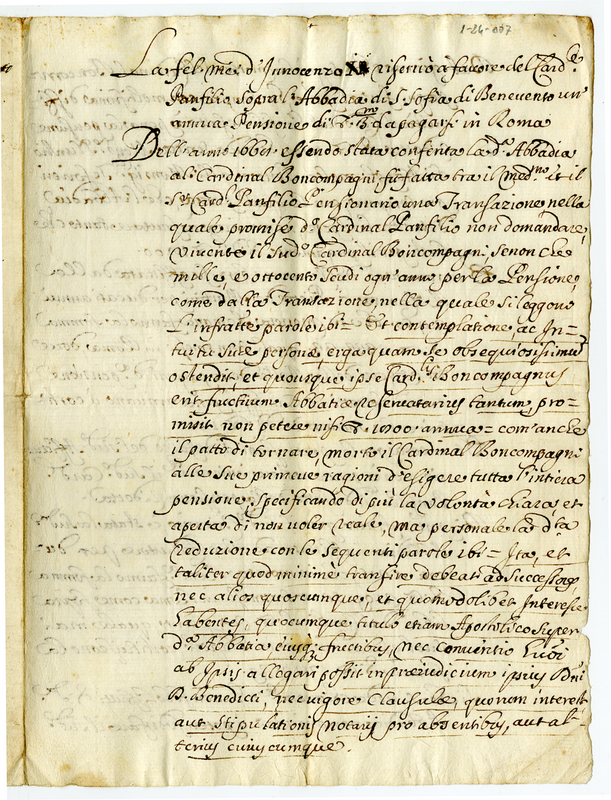 1-26-007
La fel: me: d'Innocenzo X riservò à favore del Card.e
Panfilio sopra l'Abbadia di S. Sofia di Benevento un
annua Pensione di da pagarsi in Roma
Dell'anno 1661 essendo stata conferita la d.a Abbadia
al Cardinal Boncompagni, fù fatta tra il med.mo et il
S.r Card.l Panfilio Pensionario una Transazione nella
quale promise d.o Cardinal Panfilio non domandare,
vivente il sud.o Cardinal Boncompagni, se non che
mille, e ottocento scudi ogn'anno per la Pensione,
come dalla Transazione, nella quale si leggono
l'infratte parole ibi = Et contemplatione, ac In-
tuitu sue personæ, erga quam se obsequiosissimũ
ostendit, et quousque ipse Card.lis Boncompagnus
erit fructuum Abbatiæ reservatarius tantum, pro-
misit non petere nisi annua = com'anche
il patto di tornare, morto il Cardinal Boncompagni
alle sue primeve ragioni d'esigere tutta l'intiera
pensione, specificando di più la volontà chiara, et
aperta di non voler reale, ma personale la d.ta
reduzione con le sequenti parole ibi = Ita, et
taliter quod minimè transire debeat ad successores
nec alios quoscunque, et quomodolibet Interesse
habentes, quocumque titulo etiam Apostolico super
d.a Abbatia, eiusq; fructibus, nec conventio huiusmodi
ab Ipsis allegari possit in præiudicium ipsius Dñi
D. Benedicti, nec vigore Clausulæ, quorum interest
aut stipulationis notarij pro absentibus, aut al-
terius cuiuscumque.